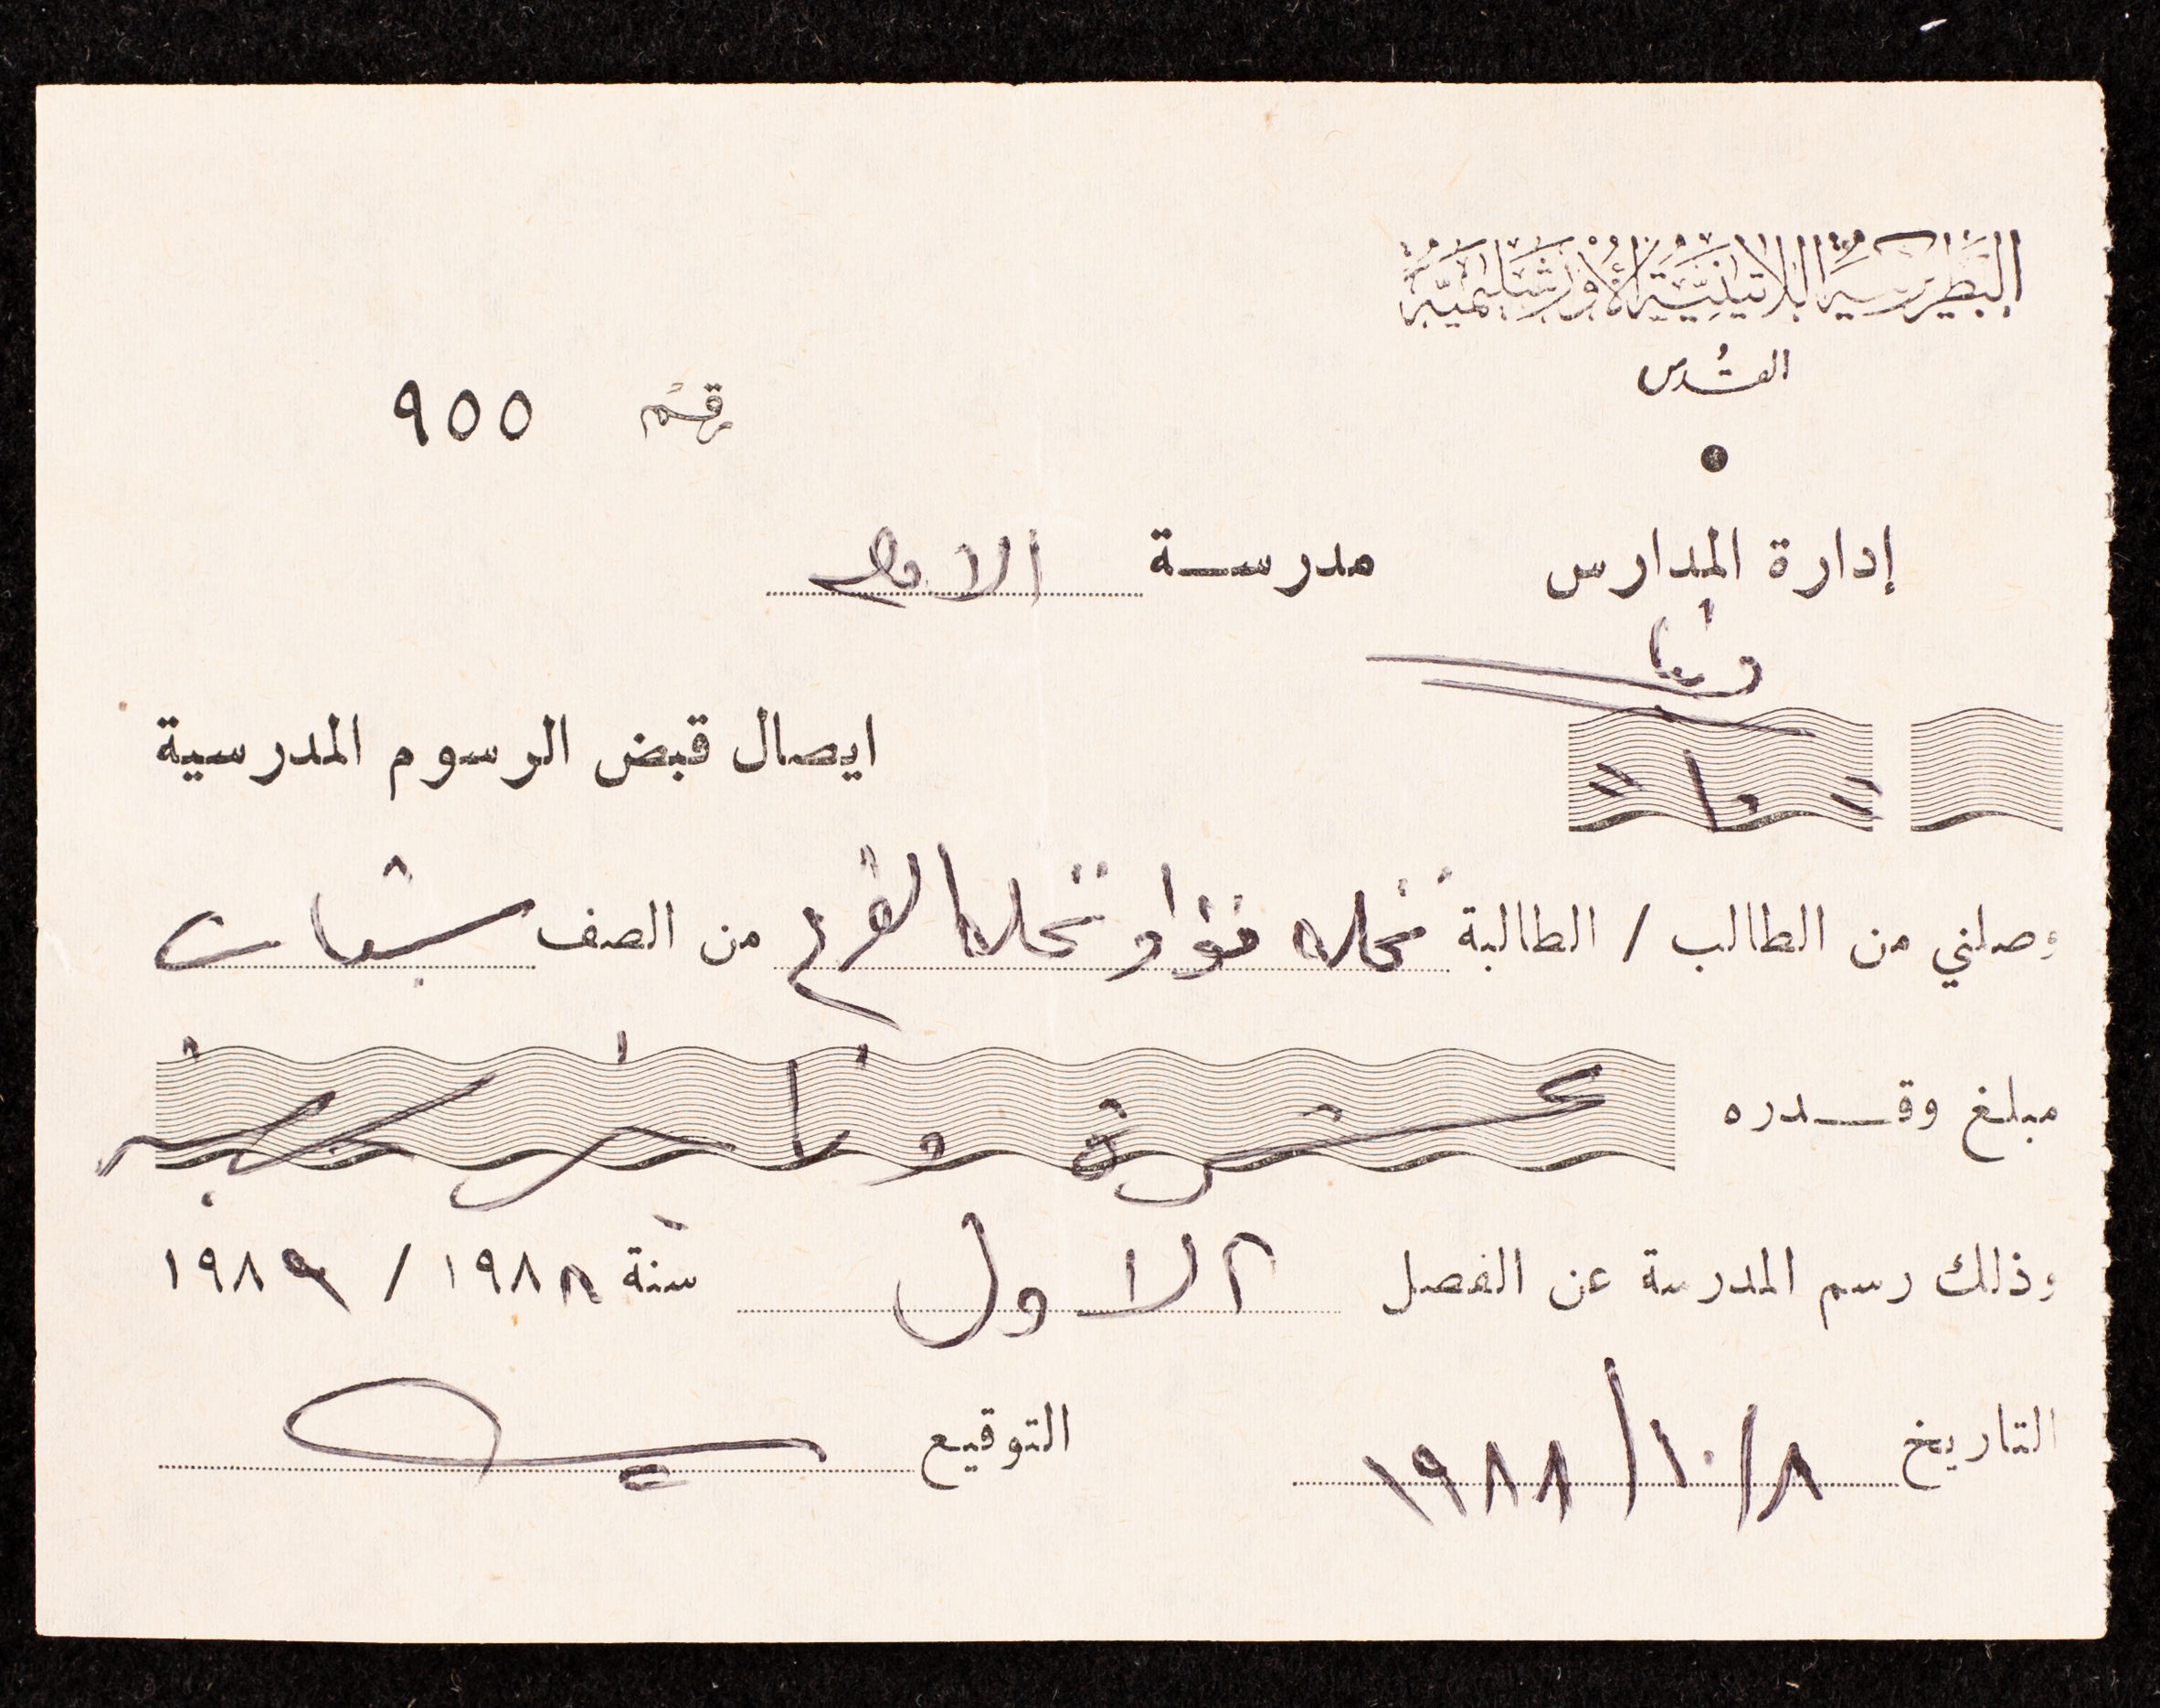 البطريركية اللاتينية الأورشليمية
القدس
رقم ٩٥٥
إدارة المدارس مدرسة
ايصال قبض الرسوم المدرسية
وصلني من الطالب / الطالبة نخله فؤاد نخله الفرح من الصف
مبلغ وقدره عشرة دنانير
وذلك رسم المدرسة عن الفصل الاول سنة ١٩٨٨ / ١٩٨٩
التاريخ ٨/١٠/١٩٨٨ التوقيع